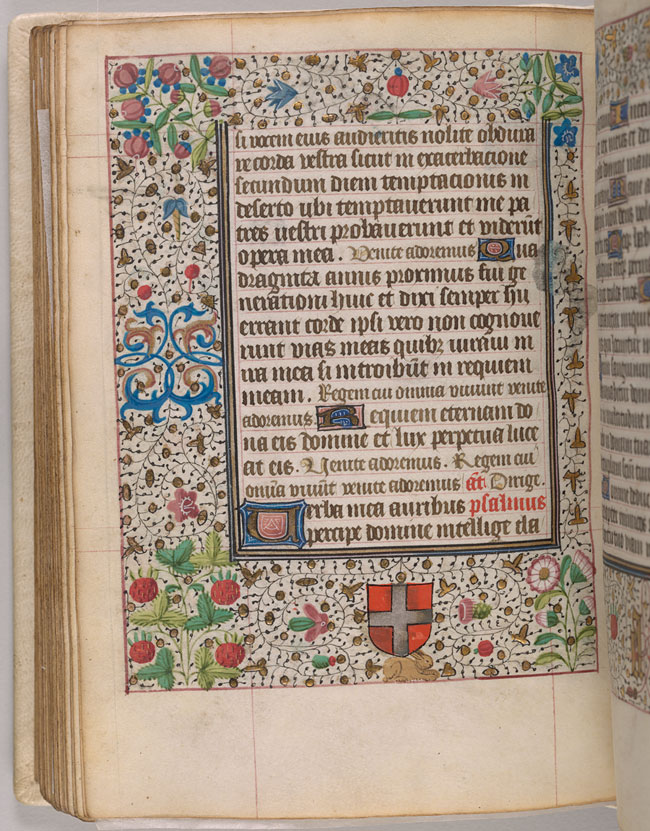 si vocem eius audieritis nolite obdura
re corda vestra sicut in exacerbacione
secundum diem temptacionis in
deserto ubi temptauerunt me pa
tres uestri probauerunt et viderūt
opera mea . Venite adoremus Qua
draginta annis proximus fui ge
nerationi huic et dixi semper hii
errant corde ipsi vero non cognoue
runt vias meas quibz iuraui in
ira mea si introibūt in requiem
meam . Regem cui omnia viuunt venite
adoremus Requiem eternam do
na eis domine et lux perpetua luce
at eis . Venite adoremus . Regem cui
omīa viuūt venite adoremus añ Dirige .
Verba mea auribus psalmus
percipe domine intellige cla